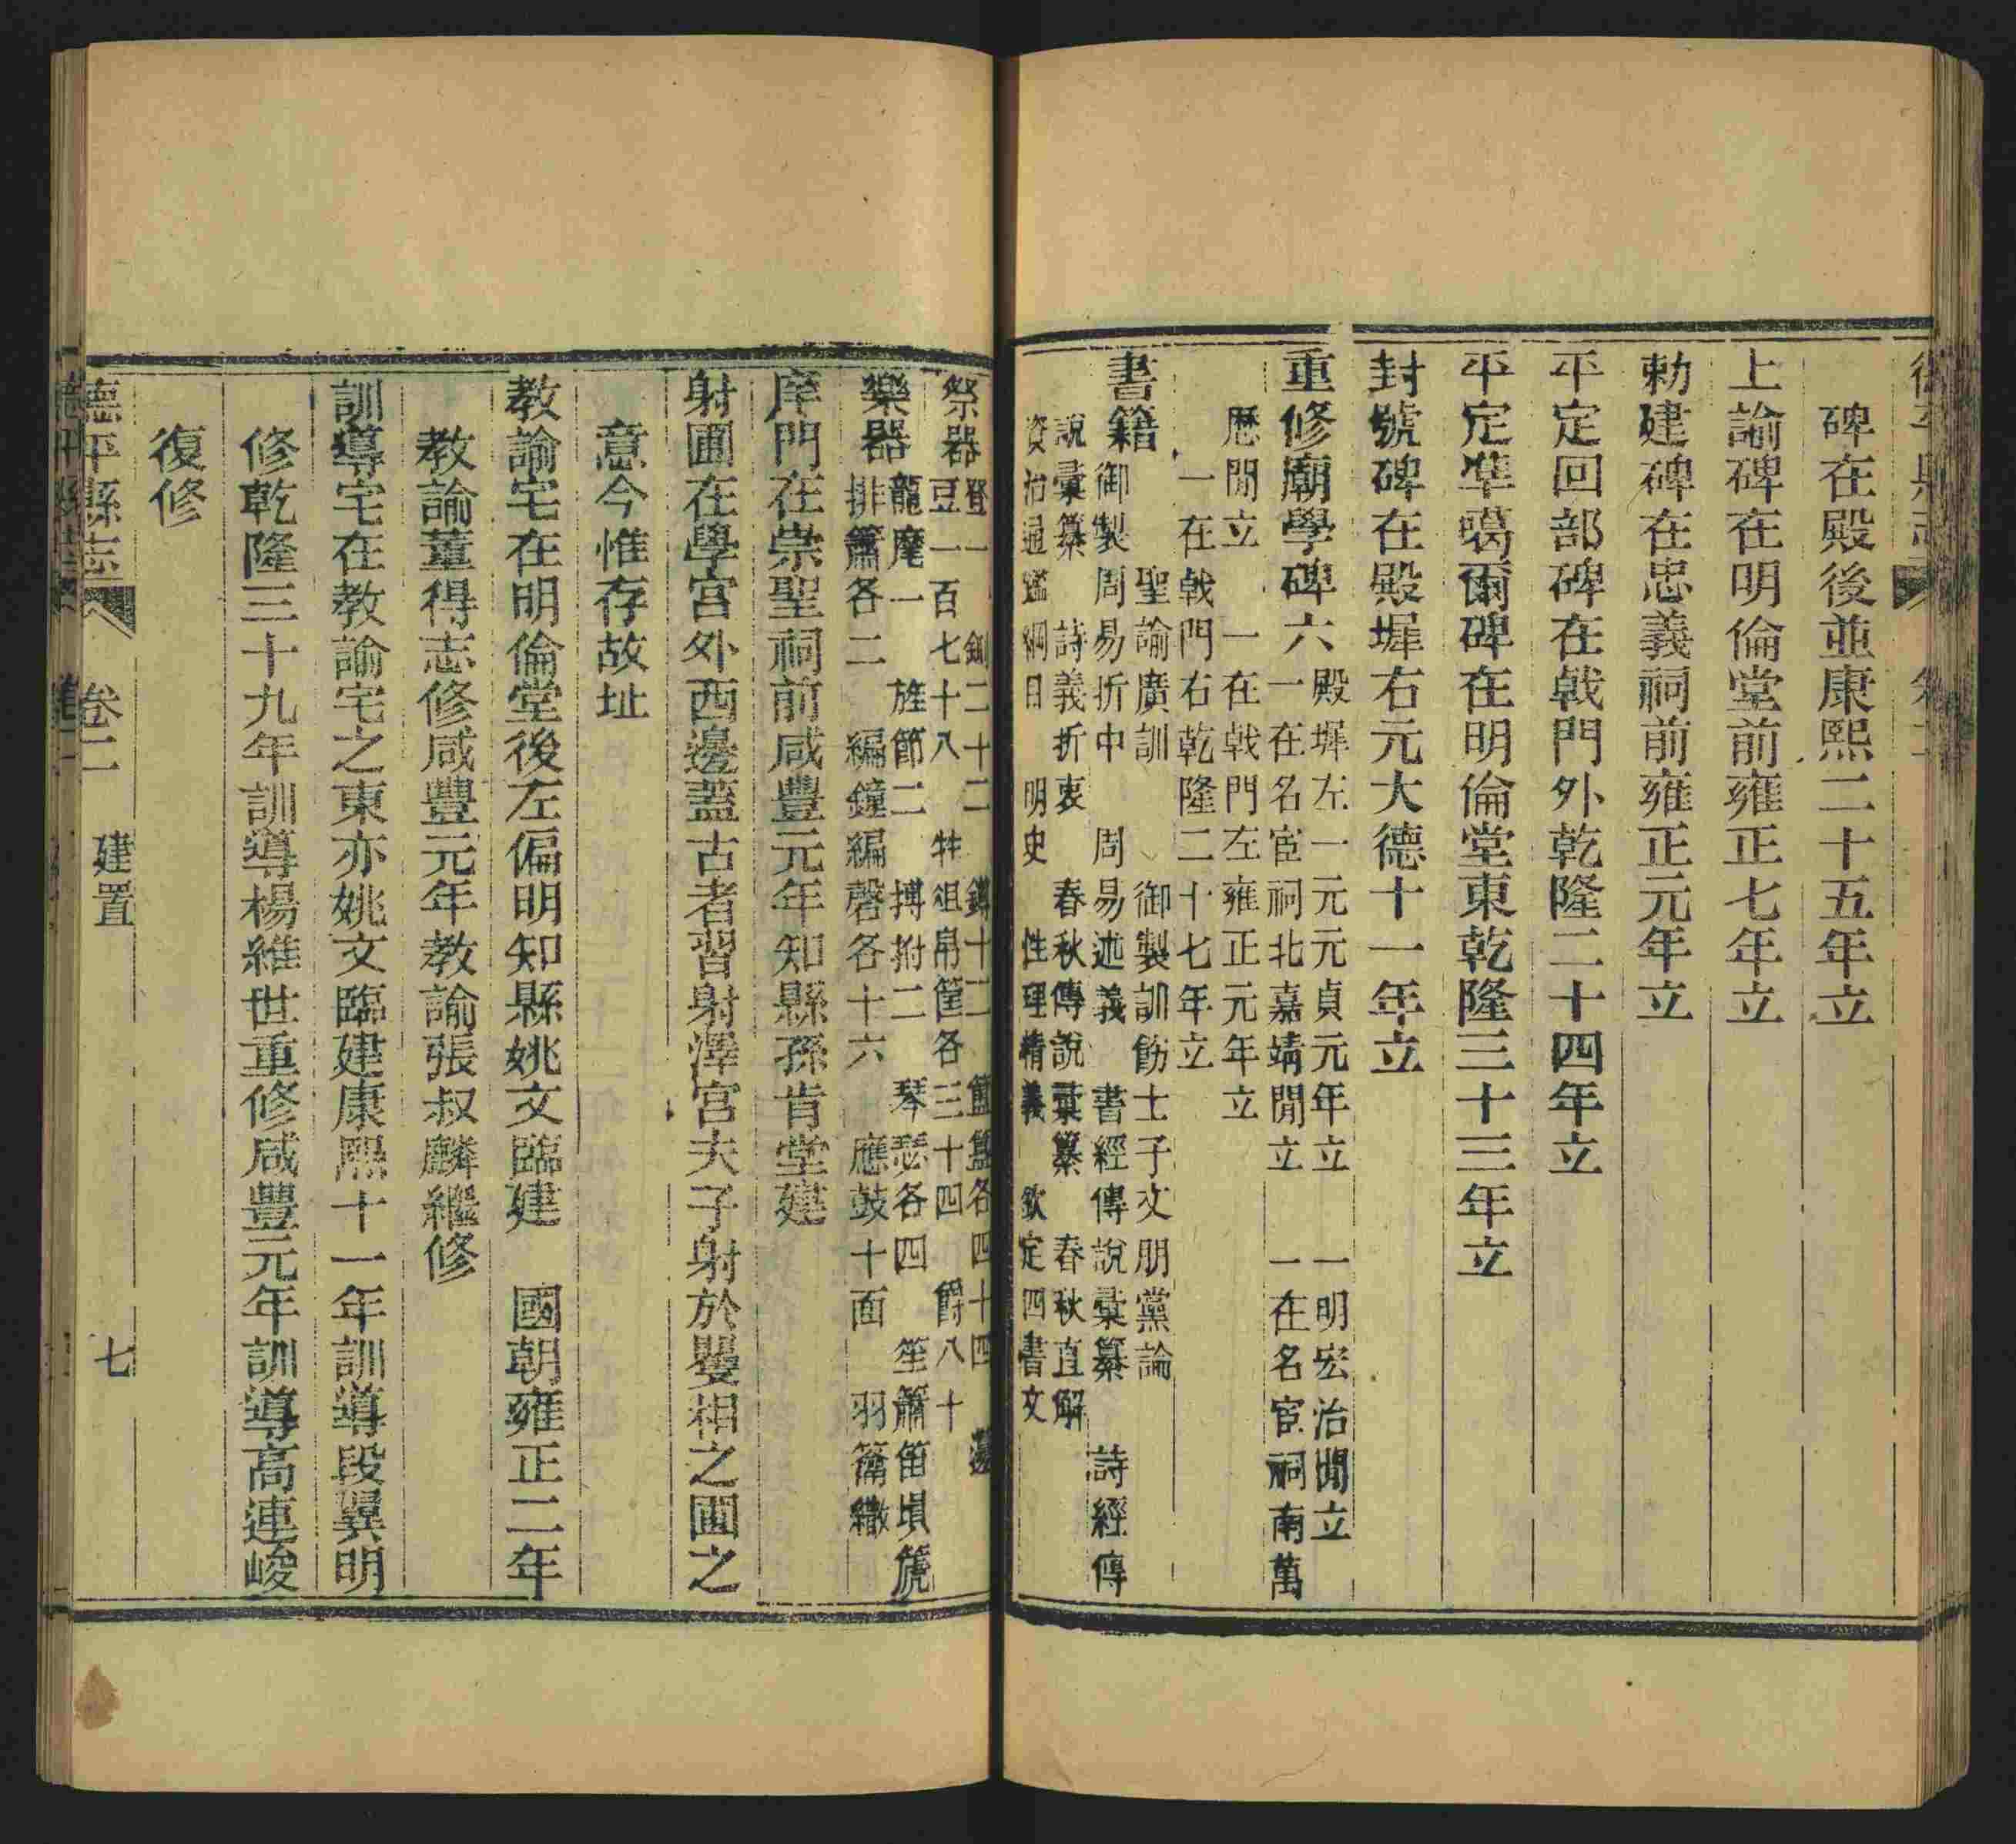 碑在殿後並康熙二十五年立
上諭碑在明倫堂前雍正七年立
勅建碑在忠義祠前雍正元年立
平定回部碑在戟門外乾隆二十四年立
平定準噶爾碑在明倫堂東乾隆三十三年立
封號碑在殿墀右元大德十一年立
重修廟學碑六
殿墀左一元元貞元年立 一明宏治閒立
一在名宦祠北嘉靖閒立 一在名宦祠南萬
歷閒立 一在戟門左雍正元年立
一在戟門右乾隆二十七年立
書籍
聖諭廣訓 御製訓飭士子文朋黨論
御製周易折中 周易述義 書經傳說彙纂 詩經傳
說彙纂 詩義折衷 春秋傳說彙纂 春秋直解
資治通鑑綱目 明史 性理精義 欽定四書文
祭器
登一 鉶二十二 鐏十二 簠簋各四十四 籩
豆一百七十八 牲俎帛篚各三十四 爵八十
樂器
龍麾一 旌節二 搏拊二 琴瑟各四 笙簫笛塤篪
排簫各二 編鐘編磬各十六 應鼓十面 羽籥
庠門在崇聖祠前咸豐元年知縣孫肯堂建
射圃在學宮外西邊蓋古者習射澤宮夫子射於矍相之圃之
意今惟存故址
教諭宅在明倫堂後左偏明知縣姚文臨建 國朝雍正二年
教諭董得志修咸豐元年教諭張叔麟繼修
訓導宅在教諭宅之東亦姚文臨建康熙十一年訓導段翼明
修乾隆三十九年訓導楊維世重修咸豐元年訓導高連峻
復修
德平縣志 卷二 建置 七